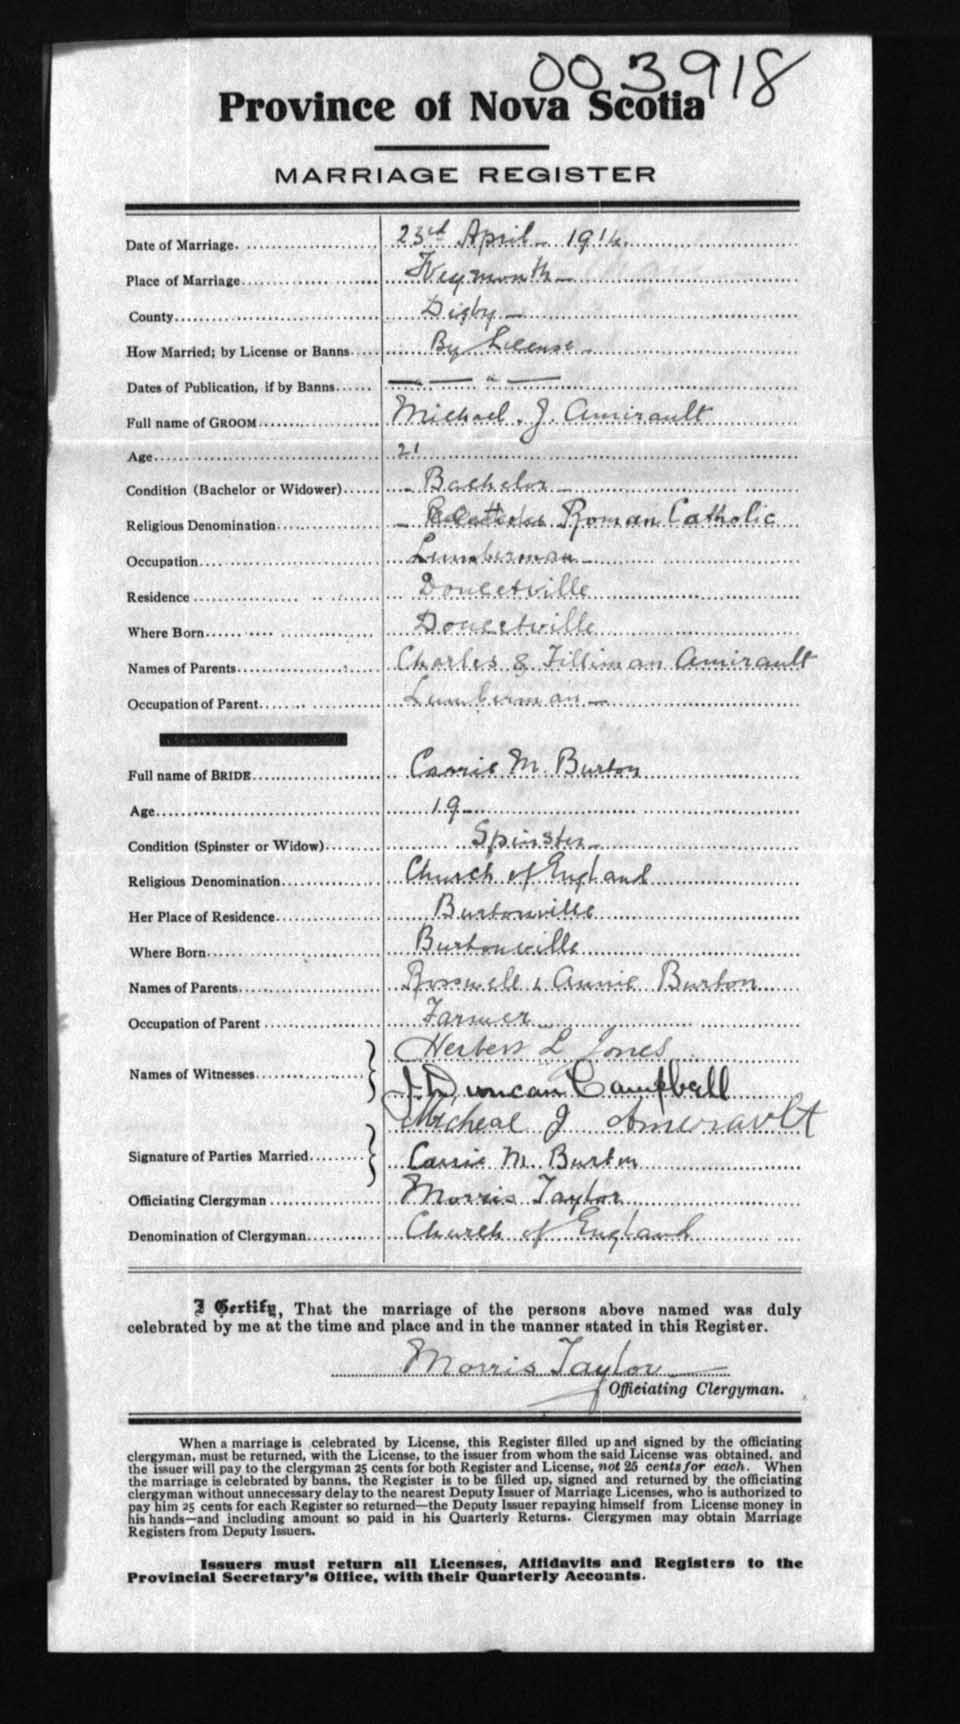 003918
Province of Nova Scotia
MARRIAGE REGISTER
Date of Marriage. 23rd April 1914.
Place of Marriage Weymouth
County Digby
How Married; by License or Banns By License
Dates of Publication, if by Banns
Full name of GROOM Michael. J. Amirault
Age 21
Condition (Bachelor or Widower) Bachelor
Religious Denomination Roman Catholic
Occupation Lumberman
Residence Doucetville
Where Born Doucetville
Names of Parents Charles & Tilliman Amirault
Occupation of Parent Lumberman
Full name of BRIDE Carrie M. Burton
Age 19
Condition (Spinster or Widow) Spinster
Religious Denomination Church of England
Her Place of Residence Burtonville
Where Born Burtonville
Names of Parents Rosswell & Annie Burton
Occupation of Parent Farmer
Herbert L Jones
Names of Witnesses
J. Duncan Campbell
Micheal J Amerault
Signature of Parties Married Carrie M. Burton
Officiating Clergyman Morris Taylor
Denomination of Clergyman Church of England
I Certify, That the marriage of the persons above named was duly
celebrated by me at the time and place and in the manner stated in this Register.
Morris Taylor
Officiating Clergyman.
When a marriage is celebrated by License, this Register filled up and signed by the officiating
clergyman, must be returned, with the License, to the issuer from whom the said License was obtained, and
the issuer will pay to the clergyman 25 cents for both Register and License, not 25 cents for each. When
the marriage is celebrated by banns, the Register is to be filled up, signed and returned by the officiating
clergyman without unnecessary delay to the nearest Deputy Issuer of Marriage Licenses, who is authorized to
pay him 25 cents for each Register so returned—the Deputy Issuer repaying himself from License money in
his hands—and including amount so paid in his Quarterly Returns. Clergymen may obtain Marriage
Registers from Deputy Issuers.
Issuers must return all Licenses, Affidavits and Registers to the
Provincial Secretary's Office, with their Quarterly Accounts.